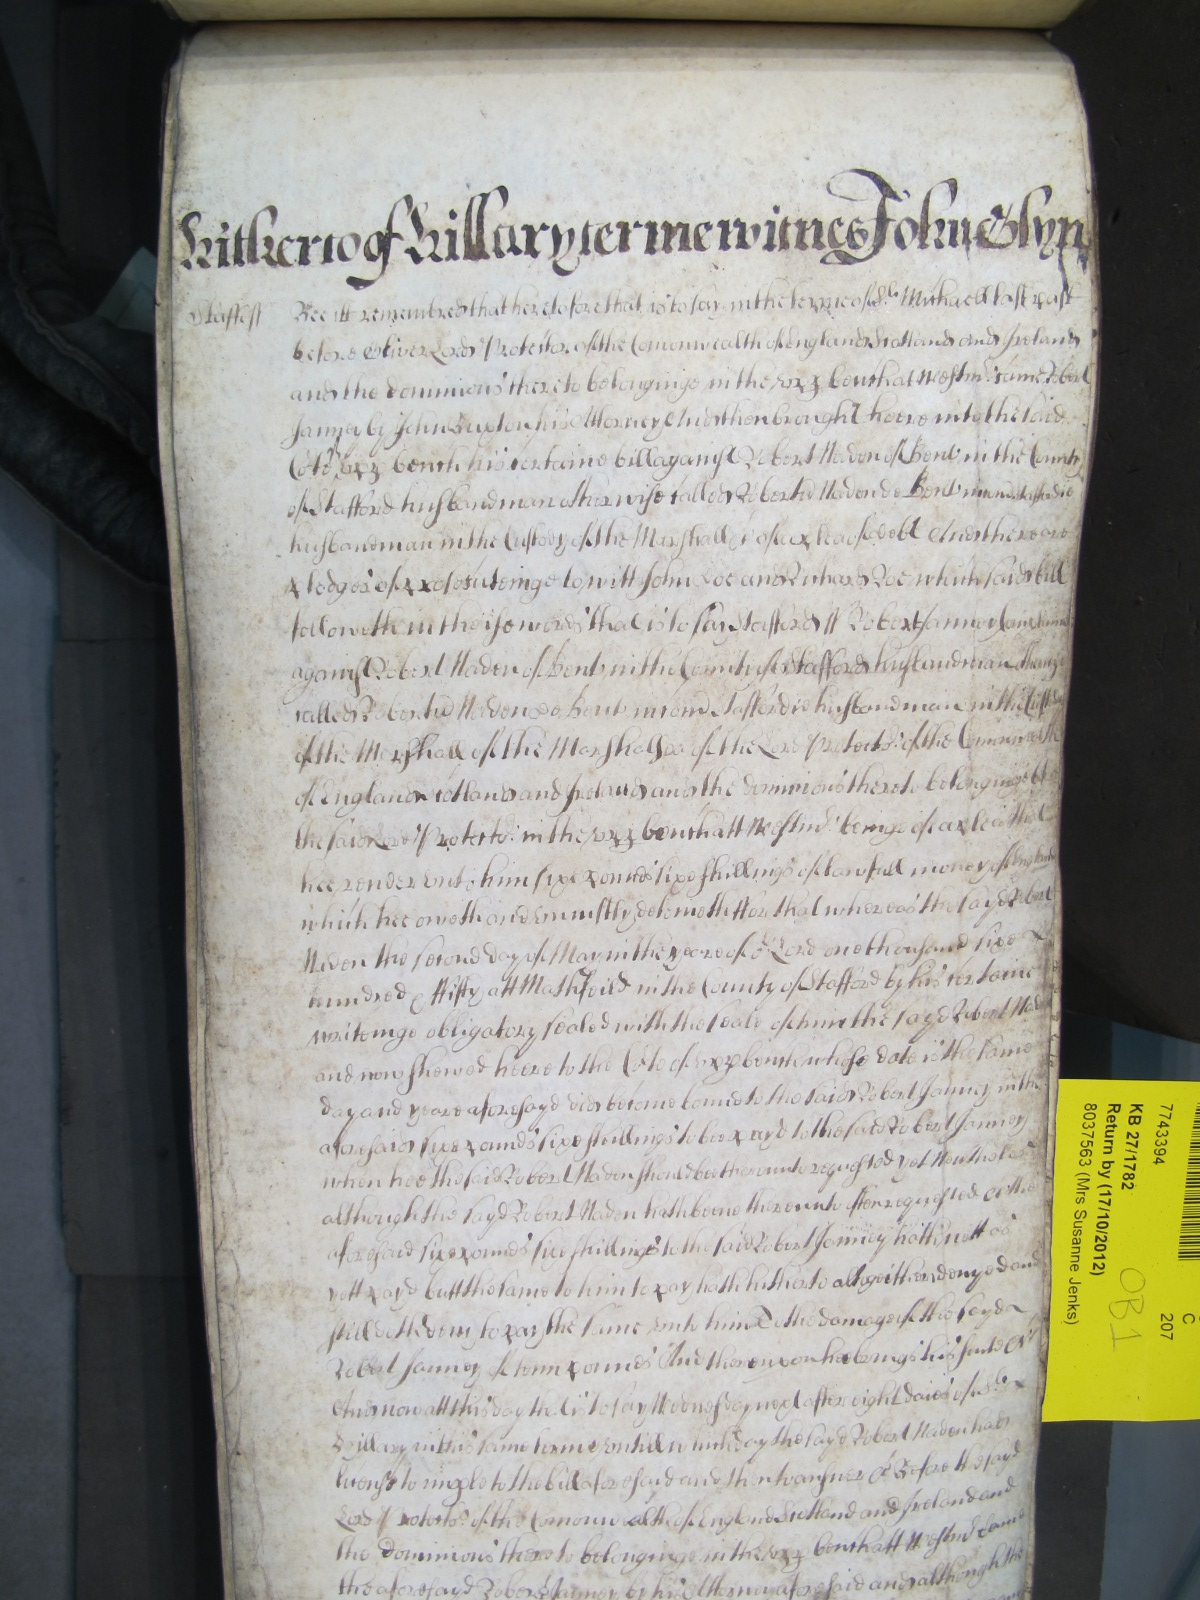 Hitherto of Hillary terme witnes John Glyn
Stafford ss
Bee itt remembred that heretofore that is to say in the terme of St Michaell last past
before Oliver Lord Protector of the Comonwealth of England Scotland and Ireland
and the dominions thereto belonginge in the upper bench at Westmr came Robert
Janney by John Buxton his Attorney And then brought heere into the said
Cote upper bench his certaine bill against Robert Naden of Bent in the County
of Stafford husbandman otherwise called Robertu Naden de Bent in com Staffordie
husbandman in the Custody of the Marshall &c of a plea of debt And there are
pledges of prosecuteinge to witt John Doe and Richard Roe which said bill
followeth in theise words that is to say Stafford ss Robert Janney
against Robert Naden of Bent in the County of Stafford husbandman otherwise
called Robertu Naden de Bent in com Staffordie husbandman in the Custody
of the Marshall of the Marshallsea of the Lord Protector of the Comonwealth
of England Scotland and Ireland and the dominions thereto belonginge
the said Lord Protector in the upper bench att Westmr beinge of a plea that
hee render unto him sixe pounds sixe shillings of lawfull money of England
which hee oweth and uniustly deteineth ffor that whereas the sayd Robert
Naden the second day of May in the yeare of or Lord one thousand sixe
hundred & ffifty att Mathfeild in the County of Stafford by his certaine
writeinge obligatory sealed with the seale of him the sayd Robert Naden
and now shewed heere to the Cote of upper bench whose date is the same
day and yeare aforesayd did become bound to the said Robert Janney in the
aforesaid sixe pounds sixe shillings to bee payd to the said Robert Janney
when hee the said Robert Naden should bee thereunto requested yet Neverthelesse
although the sayd Robert Naden hath beene thereunto often requested &c the
aforesaid sixe pounds sixe shillings to the said Robert Janney hath nott as
yett payd butt the same to him to pay hath hitherto altogeither denyed and
still doth deny to pay the same unto him To the damage of the sayd
Robert Janney of tenn pounds And thereupon hee brings his suite &c
And now att this day that is to say Wednesday next after eight daies of St
Hillary in this same terme untill which day the sayd Robert Naden had
licence to imple to the bill aforesaid and then to answer &c Before the sayd
Lord Protector of the Comonwealth of England Scotland and Ireland and
the dominions thereto belonginge in the upper bench att Westmr came
the aforesayd Robert Janney by his Attorney aforesaid and although the
7743394
C
207
KB 27/1782
Return by (17/10/2012)
8037563 (Mrs Susanne Jenks)
OB1